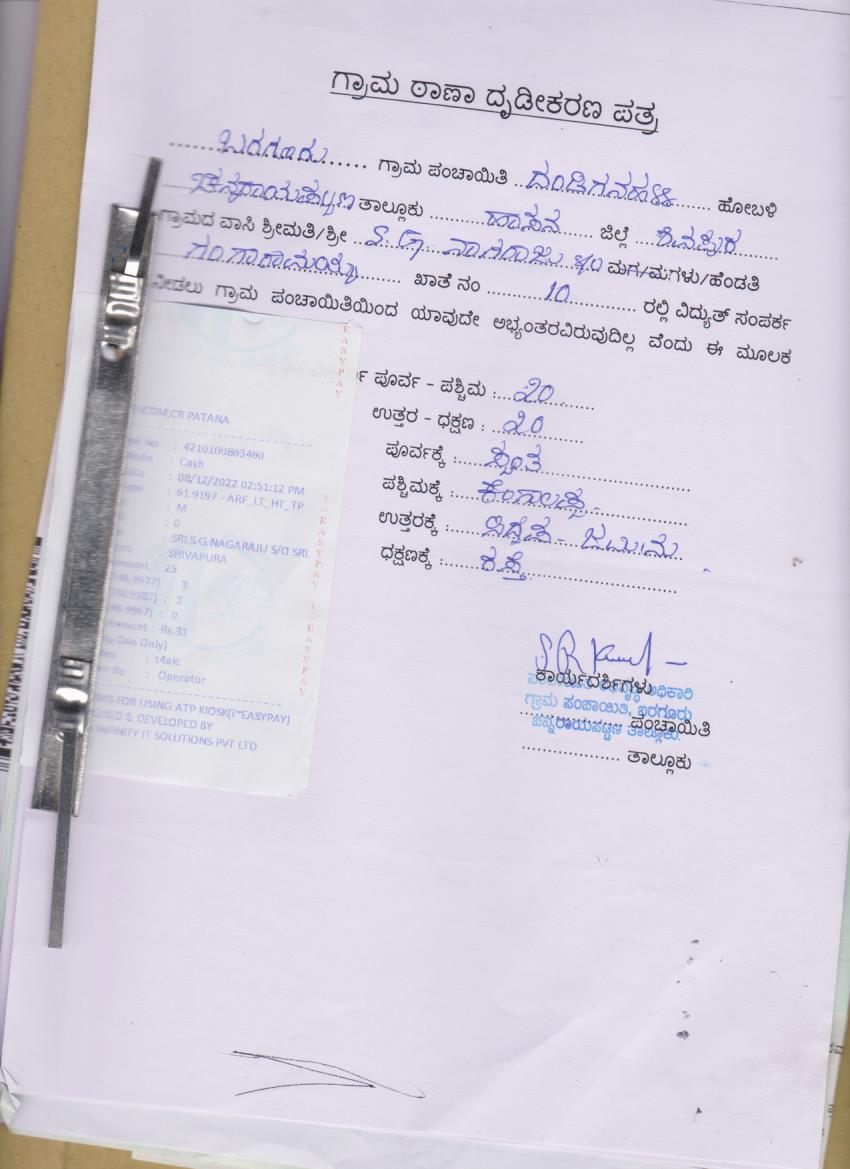 ಗ್ರಾಮ ಠಾಣಾ ದೃಡೀಕರಣ ಪತ್ರ
......ಬರಗೂರು...... ಗ್ರಾಮ ಪಂಚಾಯಿತಿ ..ದಂಡಿಗನಹಳ್ಳಿ...... ಹೋಬಳಿ
ಚನ್ನರಾಯಪಟ್ಟಣ ತಾಲ್ಲೂಕು ..........ಹಾಸನ...... ಜಿಲ್ಲೆ ....ಶಿವಪುರ........
ಗ್ರಾಮದ ವಾಸಿ ಶ್ರೀಮತಿ/ಶ್ರೀ ..S. G ನಾಗರಾಜು S/O ಮಗ/ಮಗಳು/ಹೆಂಡತಿ
ಗಂಗಾರಾಮಯ್ಯ ........ ಖಾತೆ ನಂ ..........10............ ರಲ್ಲಿ ವಿದ್ಯುತ್ ಸಂಪರ್ಕ
ನೀಡಲು ಗ್ರಾಮ ಪಂಚಾಯಿತಿಯಿಂದ ಯಾವುದೇ ಅಭ್ಯಂತರವಿರುವುದಿಲ್ಲ ವೆಂದು ಈ ಮೂಲಕ
ಪೂರ್ವ - ಪಶ್ಚಿಮ :...20..........
ಉತ್ತರ - ಧಕ್ಷಣ : ..20............
ಪೂರ್ವಕ್ಕೆ :......ಸ್ವಂತ
ಪಶ್ಚಿಮಕ್ಕೆ :....
ಉತ್ತರಕ್ಕೆ :...... ಜಮೀನು
ಧಕ್ಷಣಕ್ಕೆ :......ರಸ್ತೆ
CR PATANA
: 4210100863460
: Cash
: 08/12/2022 02:51:12 PM
: 61.9197 - ARF_LT_HT_TP
: M
: 0
: SRI.S.G.NAGARAJU S/O SRI.
: SHIVAPURA
: 25
: 3
: 3
: 0
Amount : Rs.31
Only)
: t4aic
By : Operator
FOR USING ATP KIOSK(i~EASYPAY)
& DEVELOPED BY
INFINITY IT SOLUTIONS PVT LTD
EASYPAY
I-EASYPAY I-EASYPAY
ಕಾರ್ಯದರ್ಶಿಗಳು
ಅಧಿಕಾರಿ
ಗ್ರಾಮ ಪಂಚಾಯಿತಿ, ಬರಗೂರು
.................... ಪಂಚಾಯಿತಿ
ಚನ್ನರಾಯಪಟ್ಟಣ ತಾಲ್ಲೂಕು.
.................... ತಾಲ್ಲೂಕು